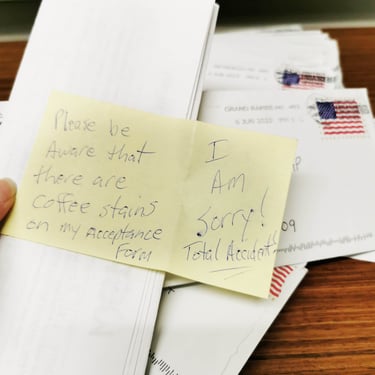 Please be
Aware that
there are
coffee stains
on my acceptance
Form
I
Am
Sorry!
Total Accident!
GRAND RAPIDS MI 493